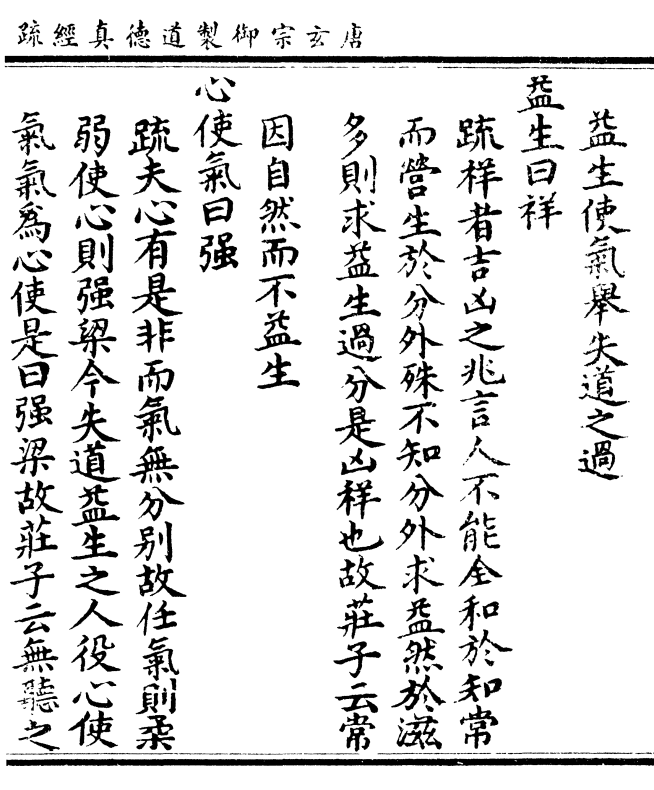 唐玄宗御製道德真經疏
益生使氣舉失道之過
益生曰祥
疏祥者吉凶之兆言人不能全和於知常
而營生於分外殊不知分外求益然於滋
多則求益生過分是凶祥也故莊子云常
因自然而不益生
心使氣曰强
疏夫心有是非而氣無分别故任氣則柔
弱使心則强梁今失道益生之人役心使
氣氣爲心使是曰强梁故莊子云無聽之